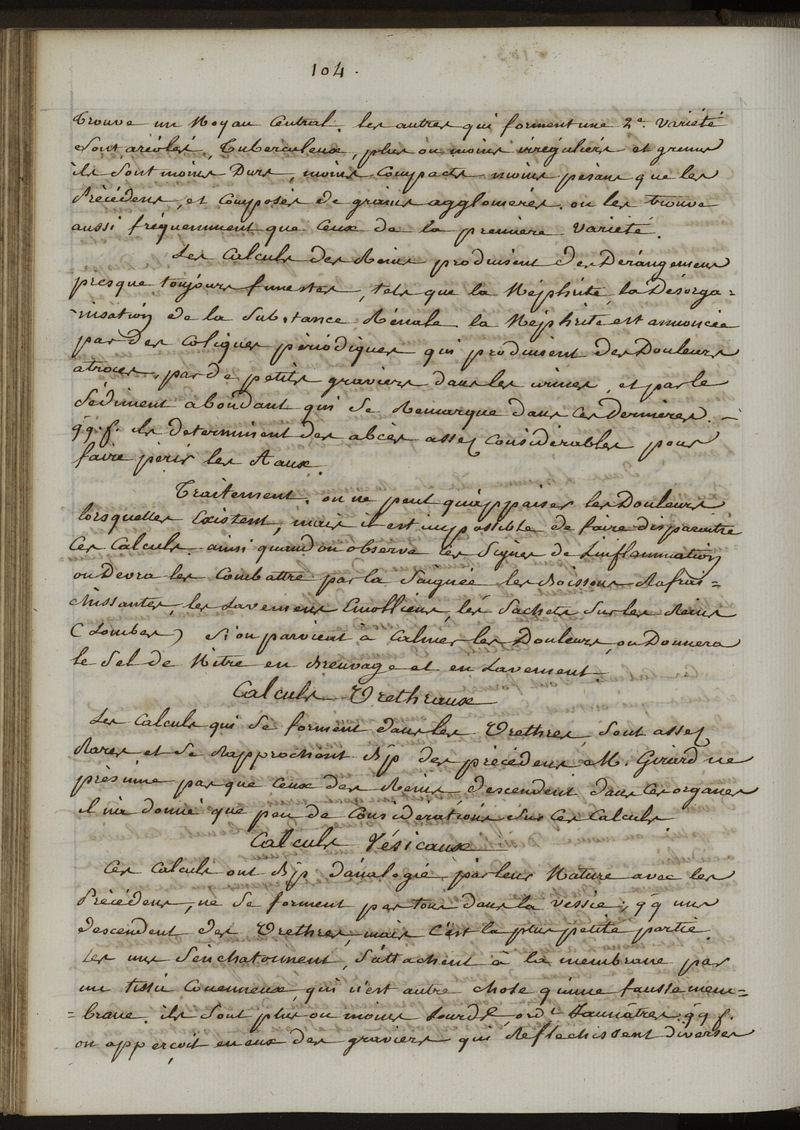 104.
trouve un Noyau Central. les autres qui forment une 2e. Variété
sont aréolés, Tuberculeux, plus ou moins irréguliers et grenus
ils sont moins Durs, moins Compacts moins pesans que les
Précédens, et Composés de grains agglomérés. on les trouve
aussi fréquemment que Ceux de la premiere Variété.
Les Calculs des Reins produisent des Dérangemens
presque toujours funestes, tels que la Néphrite, la Désorga-
-nisation de la Substance Rénale. la Néphrite est annoncée
par des Coliques périodiques qui produisent des Douleurs
atroces, par de petits graviers dans les urines, et par le
Sédiment abondant qui se Remarque dans Ces Dernieres. -
qq. f. ils determinent des abcès assez Considérables pour
faire périr les aaux.
Traitement. on ne peut qu'appaiser les Douleurs
lorsqu'elles Existent, mais il est impossible de faire disparaitre
Ces Calculs. ainsi quand on observe les Signes de L'inflammation
on Devra les Combattre par la Saignée les Boissons Rafrai=
chissantes, les Lavemens Emolliens, les Sachets Sur les Reins
(Lombes) Si on parvient à Calmer les Douleurs, on Donnera
le Sel de Nitre en Breuvage et en Lavement.
Calculs Urethraux
Les Calculs qui se forment dans les Urethres, sont assez
Rares et se Rapprochent Bp des précédens M. Girard ne
présume pas que Ceux des Reins descendent dans Ces organes
il n'a donné que peu de Considérations Sur Ces Calculs
Calculs Vésicaux
Ces Calculs ont Bp d'analogie par leur Nature avec les
Précédens, ne se forment pas tous dans la vessie, qq uns
descendent des Urethres, mais C'est la plus petite partie.
Les uns S'enchatonnent, S'attachent à la membrane par
un tissu Couenneux, qui n'est autre chose qu'une fausse mem=
=brane. ils Sont plus ou moins Lourds, ordt Jaunâtres. qq f.
on apperçoit en eux des graviers qui Reflechissent diverses